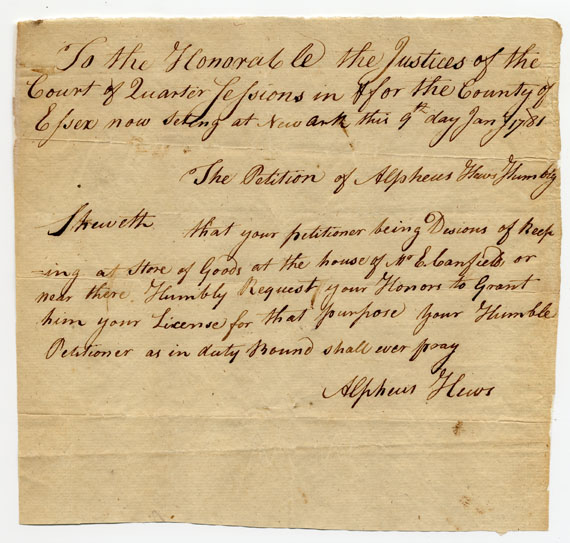 To the Honorable the Justices of the
Court of Quarter Sessions in & for the County of
Essex now Seting at Newark this 9th day Jany 1781
The Petition of Alpheus Hews Humbly
Sheweth that your petitioner being Desious of keep
-ing at Store of Goods at the house of Mr E. Canfield, or
near there. Humbly Request your Honors to Grant
him your License for that purpose Your Humble
Petitioner as in duty Bound shall ever pray
Alpheus Hews